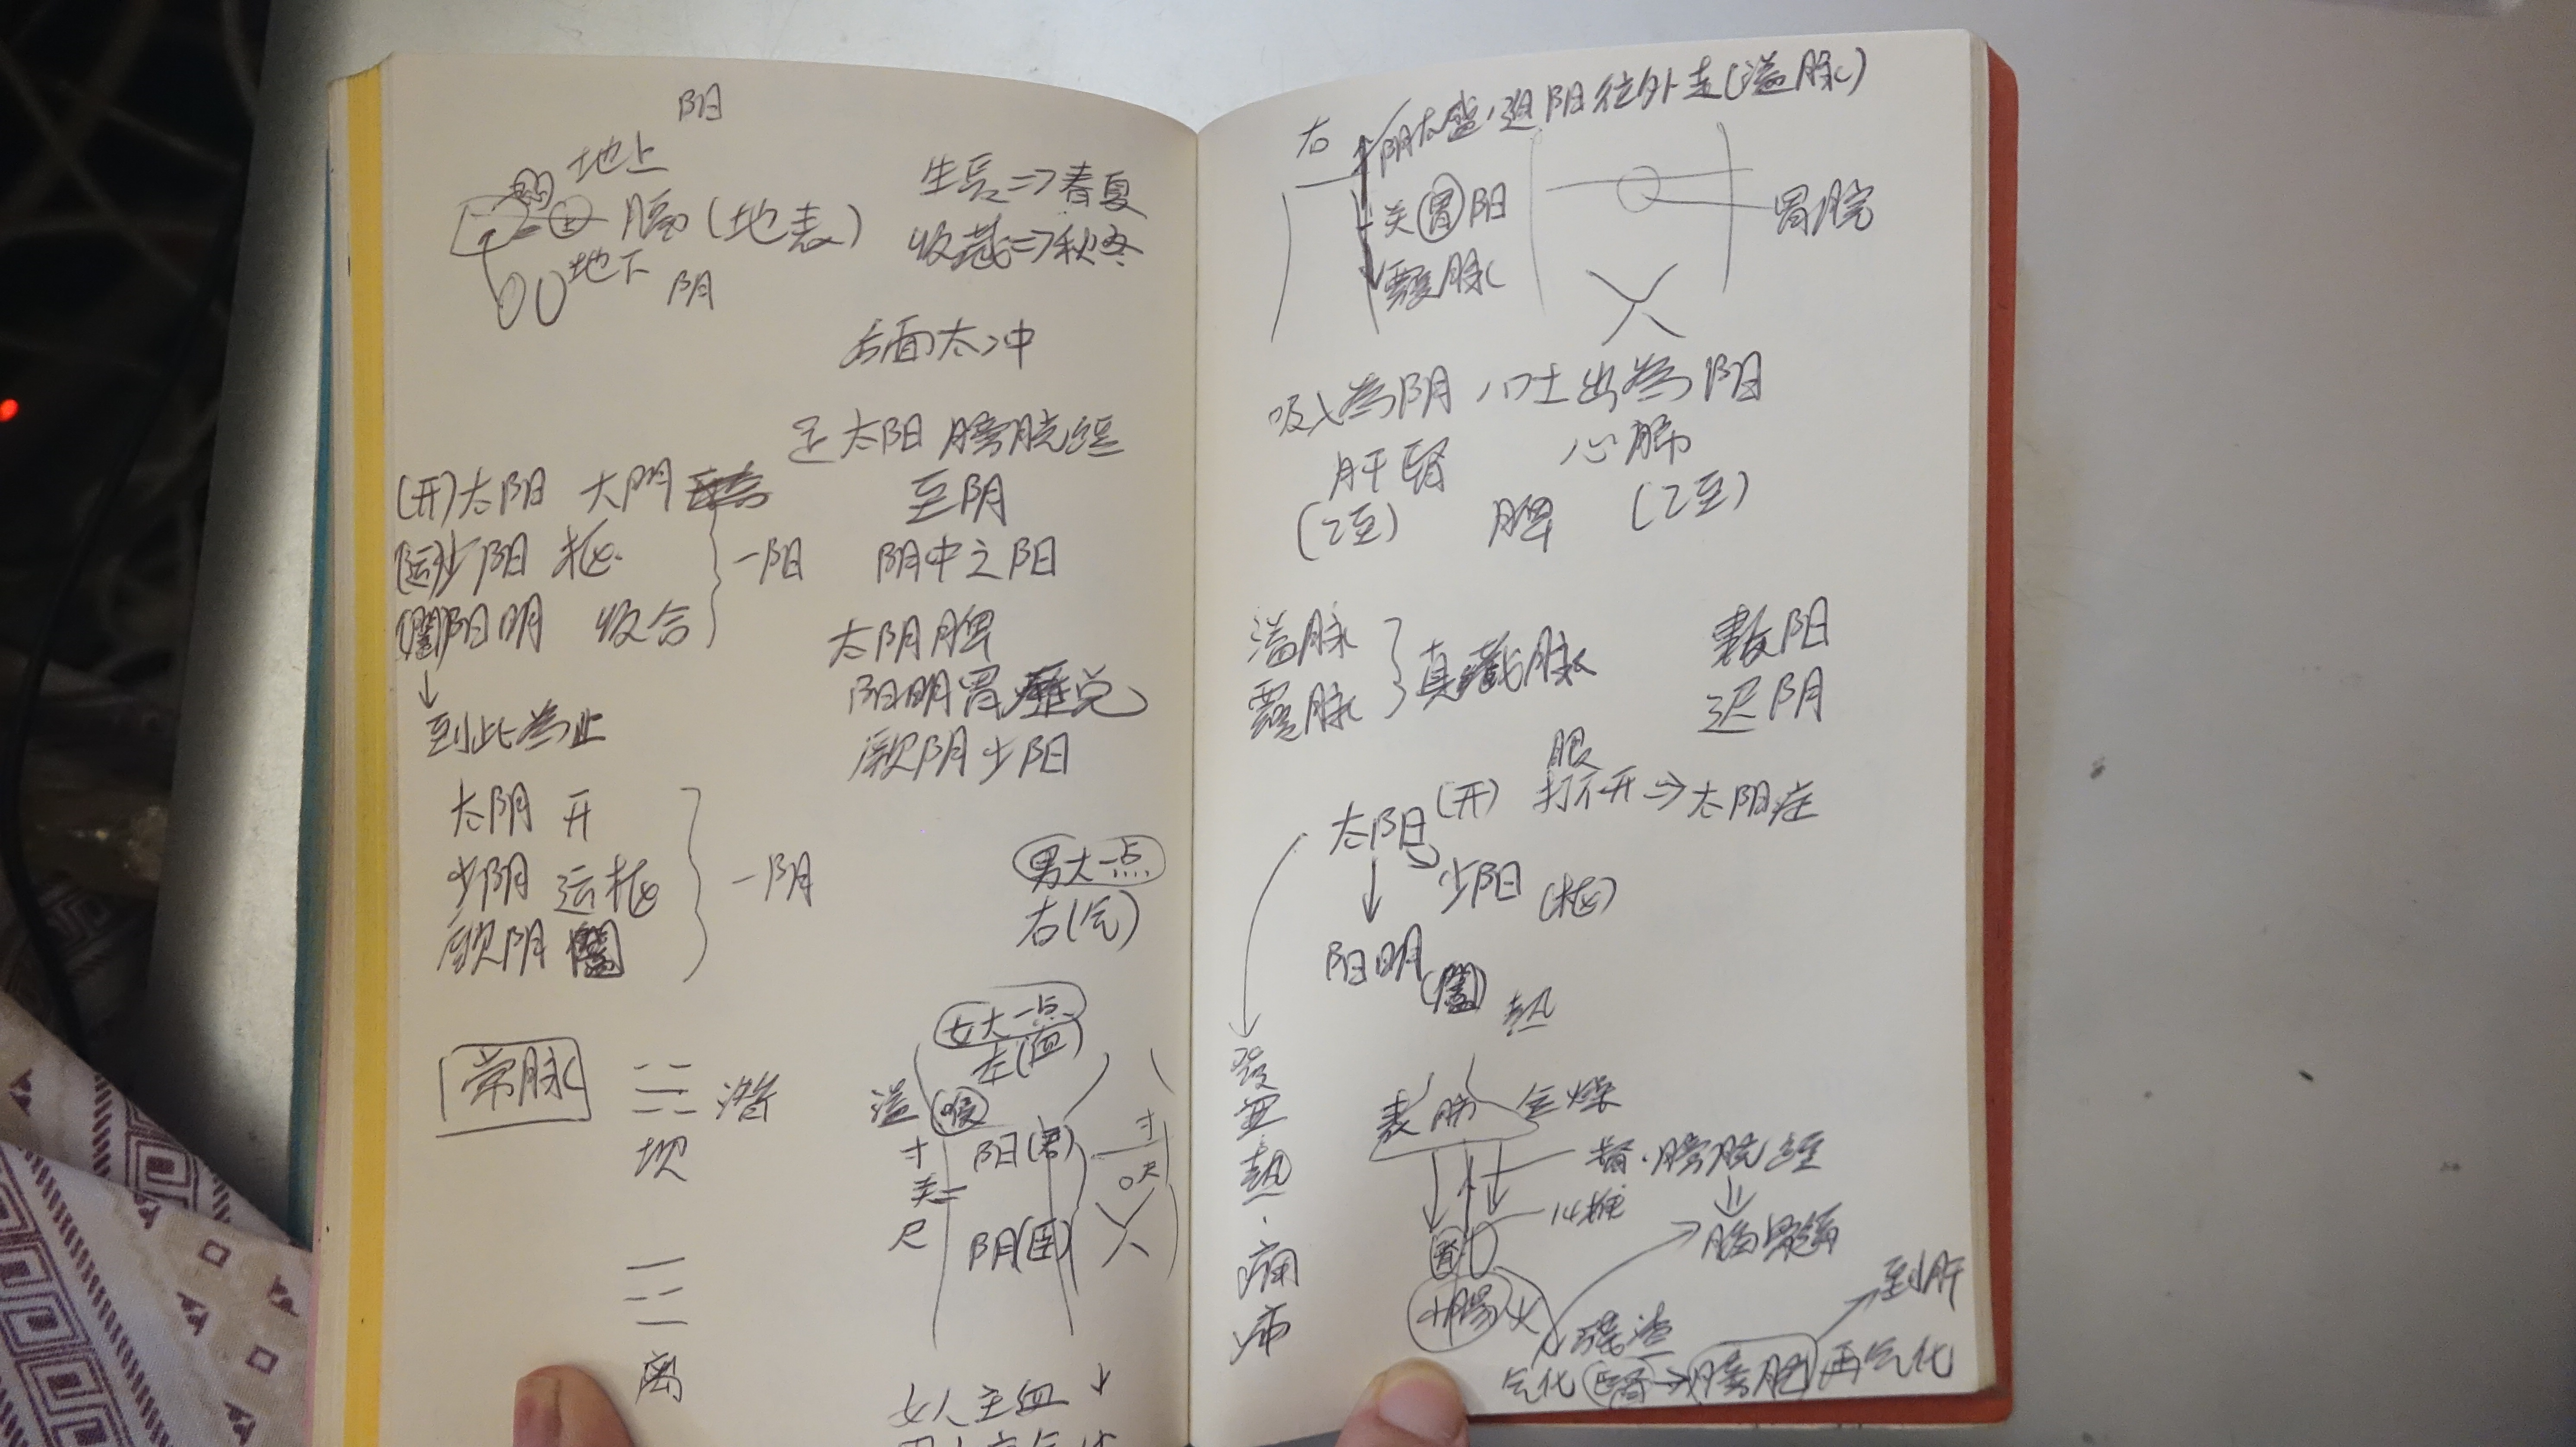 阳
地上
(地表)
地下
阴
生长=>春夏
收藏=>秋冬
后面太冲
足太阳膀胱经
至阴
阴中之阳
(开)太阳 大門
(运)少阳 枢
(闔)阳明 收合
一阳
↓
到此為止
太阴脾
阳明胃
厥阴少阳
太阴 开
少阴 运枢
厥阴 闔
一阴
男大一点
右(气)
女大一点
左(血)
常脉
潜
坎
离
溢
寸
关
尺
阳(君)
阴(臣)
寸
尺
女人主血
右
阴太盛,迫阳往外走(溢脉)
关 胃 阳
覆脉
胃脘
吸入為阴 吐出為阳
肝腎 心肺
(2至) 脾 (2至)
溢脉
覆脉
真藏脉
数阳
迟阴
太阳(开) 打不开=>太阳症
↓
少阳(枢)
阳明(闔)
熱
表 肺 金燥
督.膀胱经
14椎
腎
小腸火
残渣
到肝
气化 膀胱 再气化